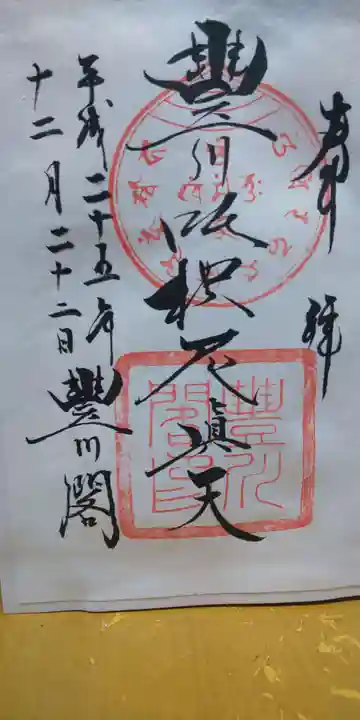 奉拝
豐川吒枳尼眞天
平成二十五年
十二月二十二日
豐川閣
豐川
閣印